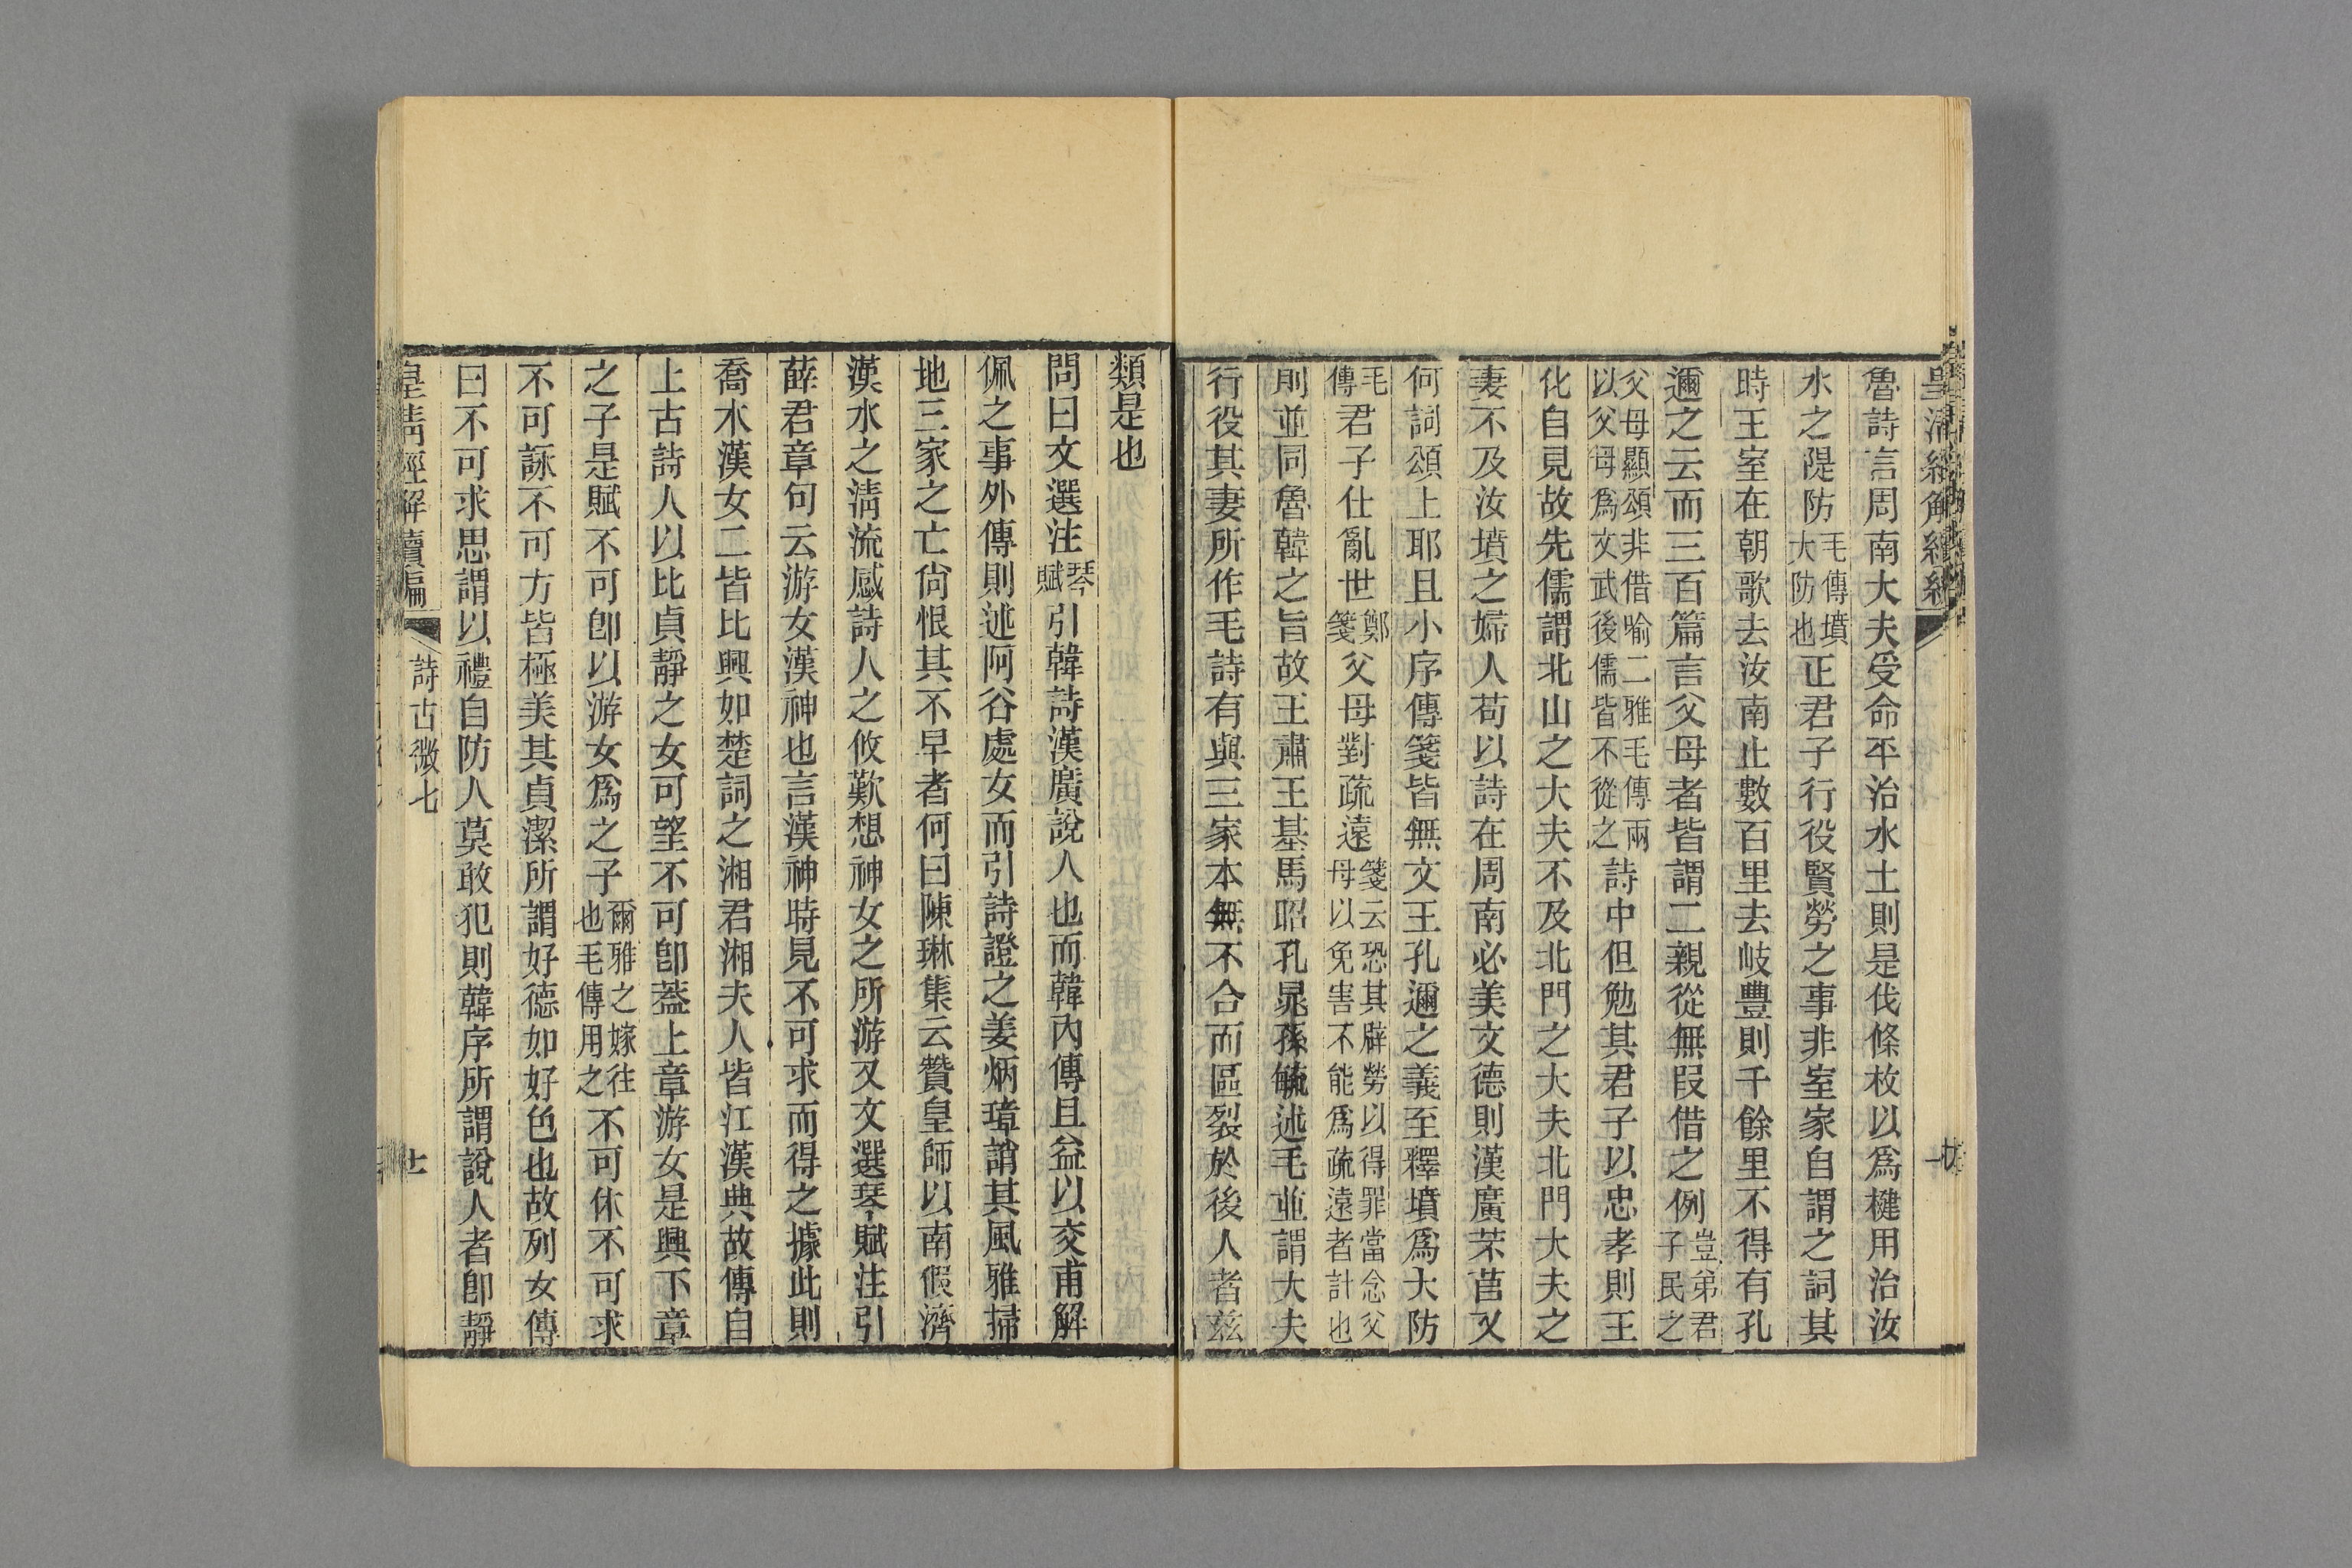 魯詩言周南大夫受命平治水土則是伐條枚以爲楗用治汝
水之隄防毛傳墳大防也正君子行役賢勞之事非室家自謂之詞其
時王室在朝歌去汝南止數百里去岐豐則千餘里不得有孔
邇之云而三百篇言父母者皆謂二親從無叚借之例豈弟君子民之
父母顯頌非借喻二雅毛傳兩以父母爲文武後儒皆不從之詩中但勉其君子以忠孝則王
化自見故先儒謂北山之大夫不及北門之大夫北門大夫之
妻不及汝墳之婦人苟以詩在周南必美文德則漢廣芣苢又
何詞頌上耶且小序傳箋皆無文王孔邇之義至釋墳爲大防
毛傳君子仕亂世鄭箋父母對疏遠箋云恐其辟勞以得罪當念父母以免害不能爲疏遠者計也
則並同魯韓之旨故王肅王基馬昭孔晁孫毓述毛並謂大夫
行役其妻所作毛詩有與三家本無不合而區裂於後人者茲
類是也
問曰文選注琴賦引韓詩漢廣說人也而韓內傳且益以交甫解
佩之事外傳則述阿谷處女而引詩證之姜炳璋誚其風雅掃
地三家之亡尙恨其不早者何曰陳琳集云贊皇師以南假濟
漢水之清流感詩人之攸歎想神女之所游又文選琴賦注引
薛君章句云游女漢神也言漢神時見不可求而得之據此則
喬木漢女二皆比興如楚詞之湘君湘夫人皆江漢典故傳自
上古詩人以比貞靜之女可望不可卽蓋上章游女是興下章
之子是賦不可卽以游女爲之子爾雅之嫁往也毛傳用之不可休不可求
不可詠不可方皆極美其貞潔所謂好德如好色也故列女傳
曰不可求思謂以禮自防人莫敢犯則韓序所謂說人者卽靜
皇清經解續編
詩古微七